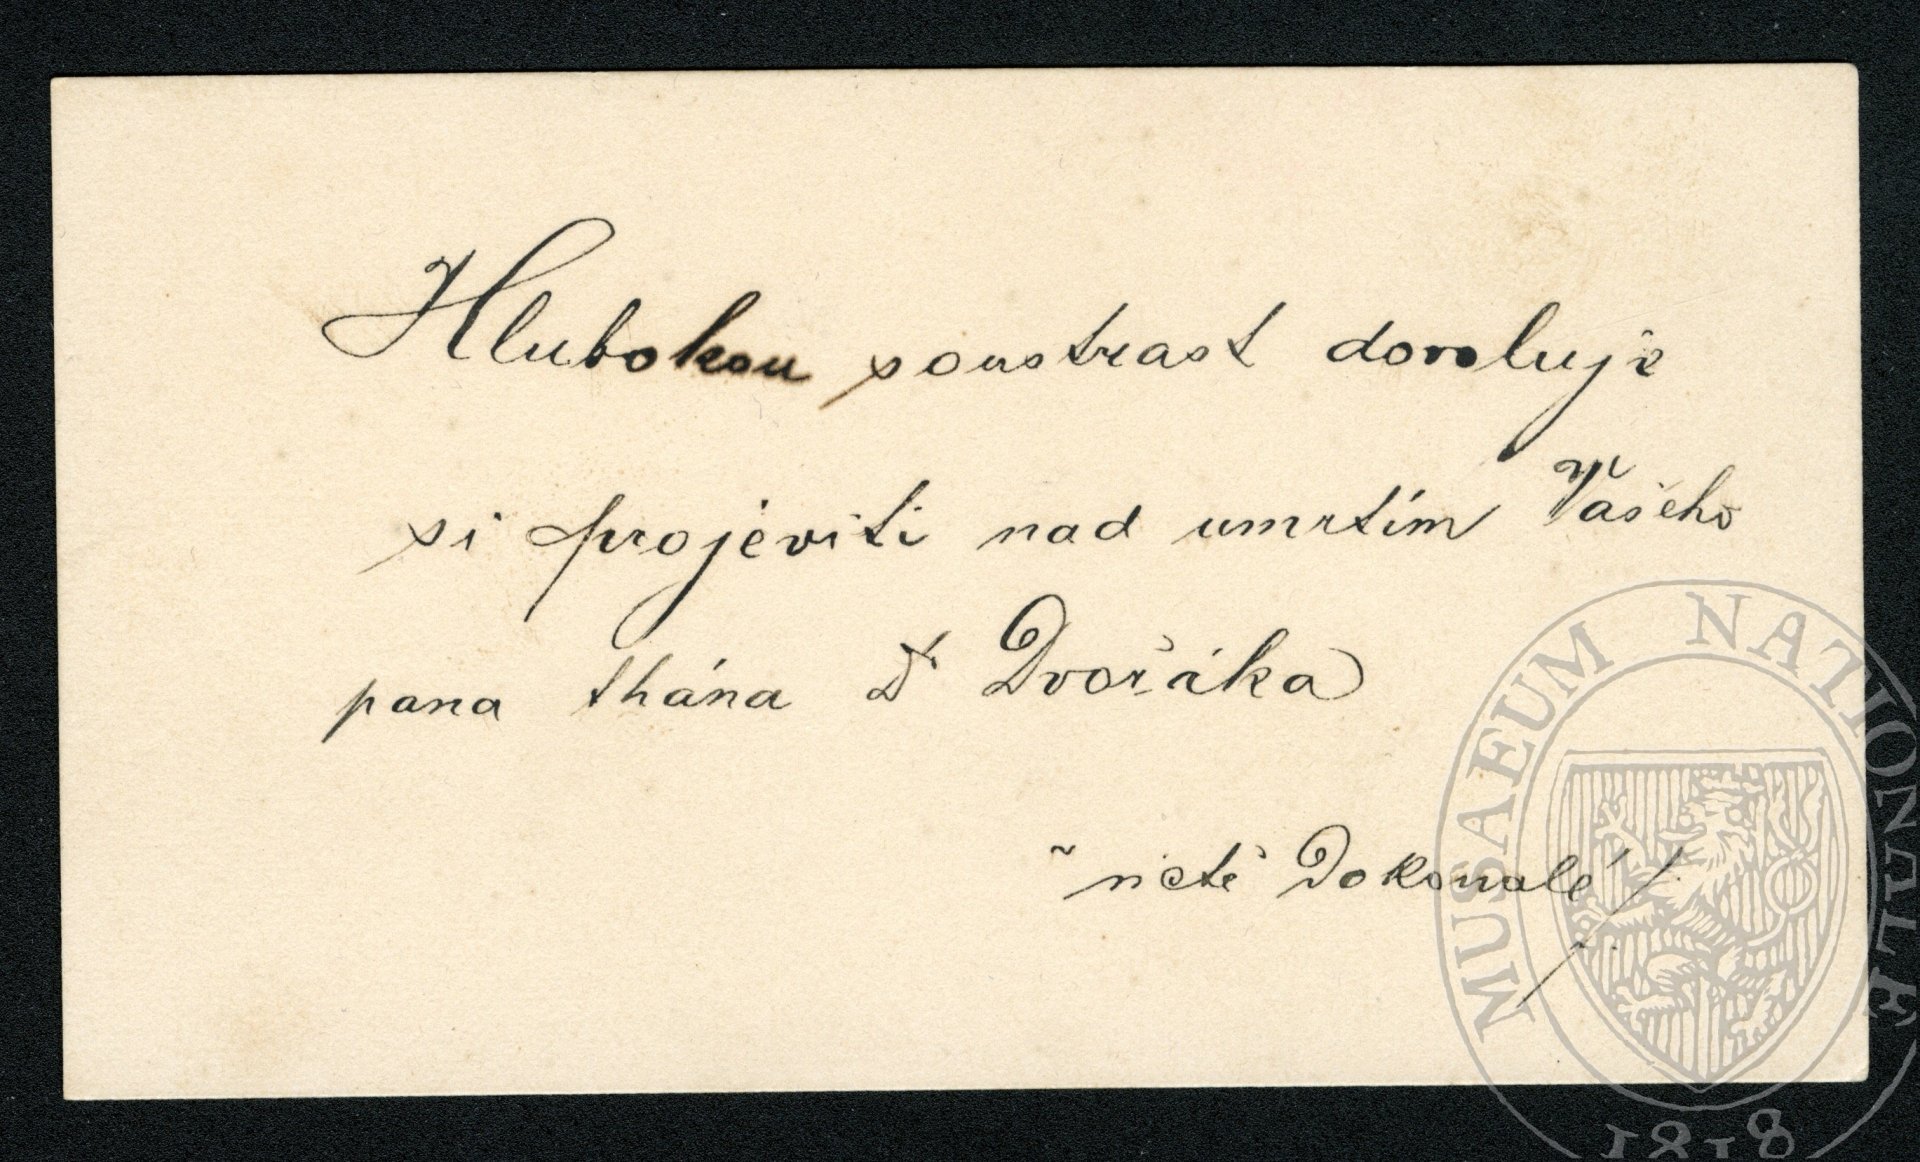 Hlubokou soustrast dovoluje
si projeviti nad umrtím Vašeho
pana thána Dr Dvořáka
Dokonalé
MUSAEUM NATIONALE
1818